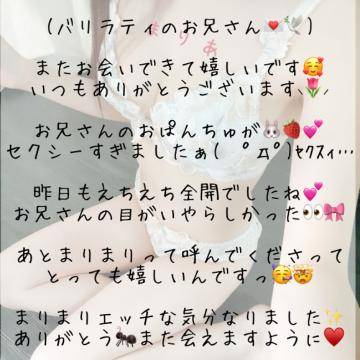 (バリラティのお兄さん💌🕊️)
またお会いできて嬉しいです🥰
いつもありがとうございます🌷
お兄さんのおぱんちゅが🐰🍓💕
セクシーすぎましたぁ( ﾟДﾟ)ﾔｸｽｨ…
昨日もえちえち全開でしたね💕
お兄さんの目がいやらしかった👀🎀
あとまりまりって呼んでくださって
とっても嬉しいんですっ🥳🤯
まりまりエッチな気分なりました✨
ありがとう🐜また会えますように♥️